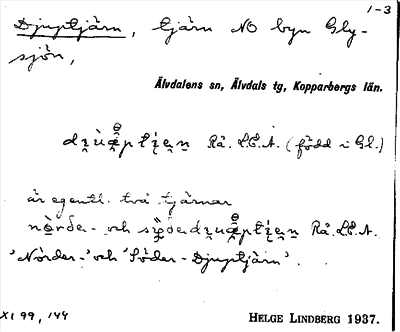 1-3
Djuptjärn, tjärn NO byn Gly-
sjön,
Älvdalens sn, Älvdals tg, Kopparbergs län.
Rå. L.E.A. (född i Gl.)
är egentl. två tjärnar
och Rå. L.E.A.
'Norder-' och 'Söder-Djuptjärn'.
XI 99, 144
HELGE LINDBERG 1937.